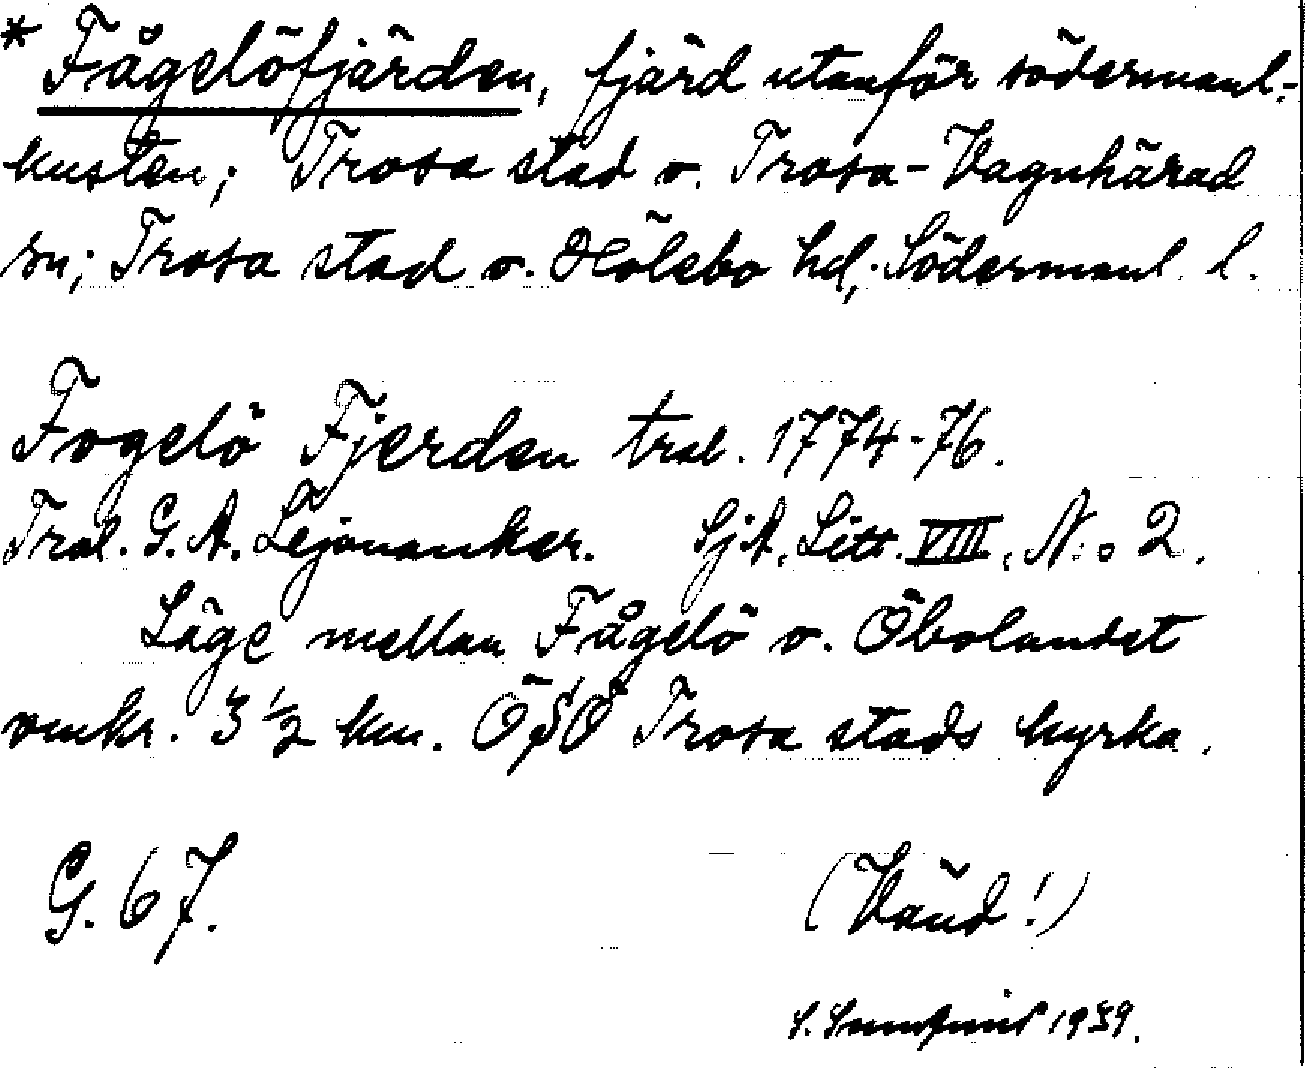 * Fågelöfjärden, fjärd utanför södermanl.-
kusten; Trosa stad o. Trosa-Vagnhärad
sn; Trosa stad o. Hölebo hd, Södermanl. l.
Fogelö Fjerden tral. 1774-76.
Tral. G. A. Lejonanker. SjA, Litt. VIII, N:o 2.
Läge mellan Fågelö o. Öbolandet
omkr. 3 ½ km. ÖSÖ Trosa stads kyrka.
G. 67. (Vänd!)
S. 1939.